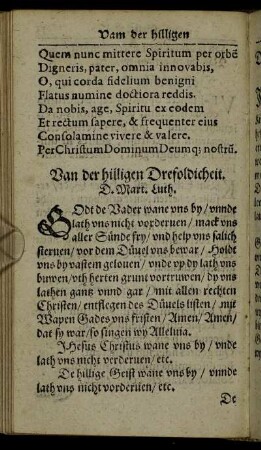 Vam der hilligen
Quem nunc mittere Spiritum per orbē
Digneris, pater, omnia innovabis,
O, qui corda fidelium benigni
Flatus numine doctiora reddis.
Da nobis, age, Spiritu ex eodem
Et rectum sapere, & frequenter eius
Consolamine vivere & valere.
Per Christum Dominum Deumq; nostrū.
Van der hilligen Drefoldicheit.
D. Mart. Luth.
GOdt de Vader wane vns by / vnnde
lath vns nicht vorderuen / mack vns
aller Sünde fry / vnd help vns salich
steruen / vor dem Düuel vns bewar / Holdt
vns by vastem gelouen / vnde vp dy lath vns
buwen / vth herten grunt vortruwen / dy vns
lathen gantz vnnd gar / mit allen rechten
Christen / entflegen des Düuels listen / mit
Wapen Gades vns fristen / Amen / Amen /
dat sy war / so singen wy Alleluia.
JHesus Christus wane vns by / vnde
lath vns nicht vorderuen / etc.
De hillige Geist wane vns by / vnnde
lath vns nicht vorderuen / etc.
De